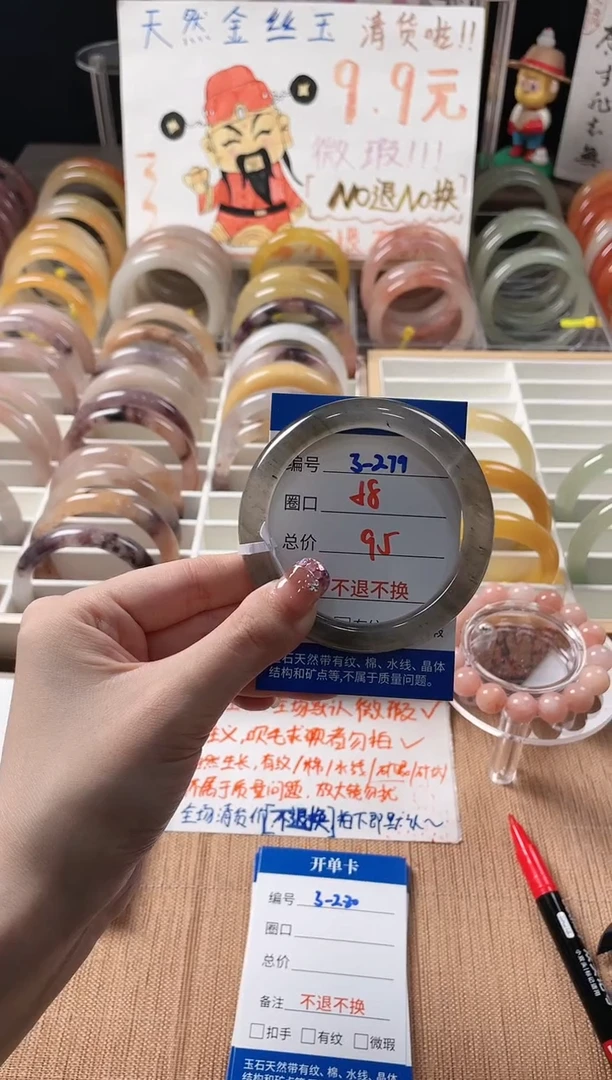 天然金丝玉 清货啦!!
9.9元
微瑕!!!
NO退NO换
编号 3-279
圈口 58
总价 95
不退不换
玉石天然带有纹、棉、水线、晶体
结构和矿点等,不属于质量问题。
全场默认微瑕✓
义,吹毛求疵者勿拍✓
然生长,有纹/棉/水线/
属于质量问题,放大镜勿扰
全场清货价[不退换]拍下即默认~
开单卡
编号 3-280
圈口
总价
备注 不退不换
□扣手 □有纹 □微瑕
玉石天然带有纹、棉、水线、晶体